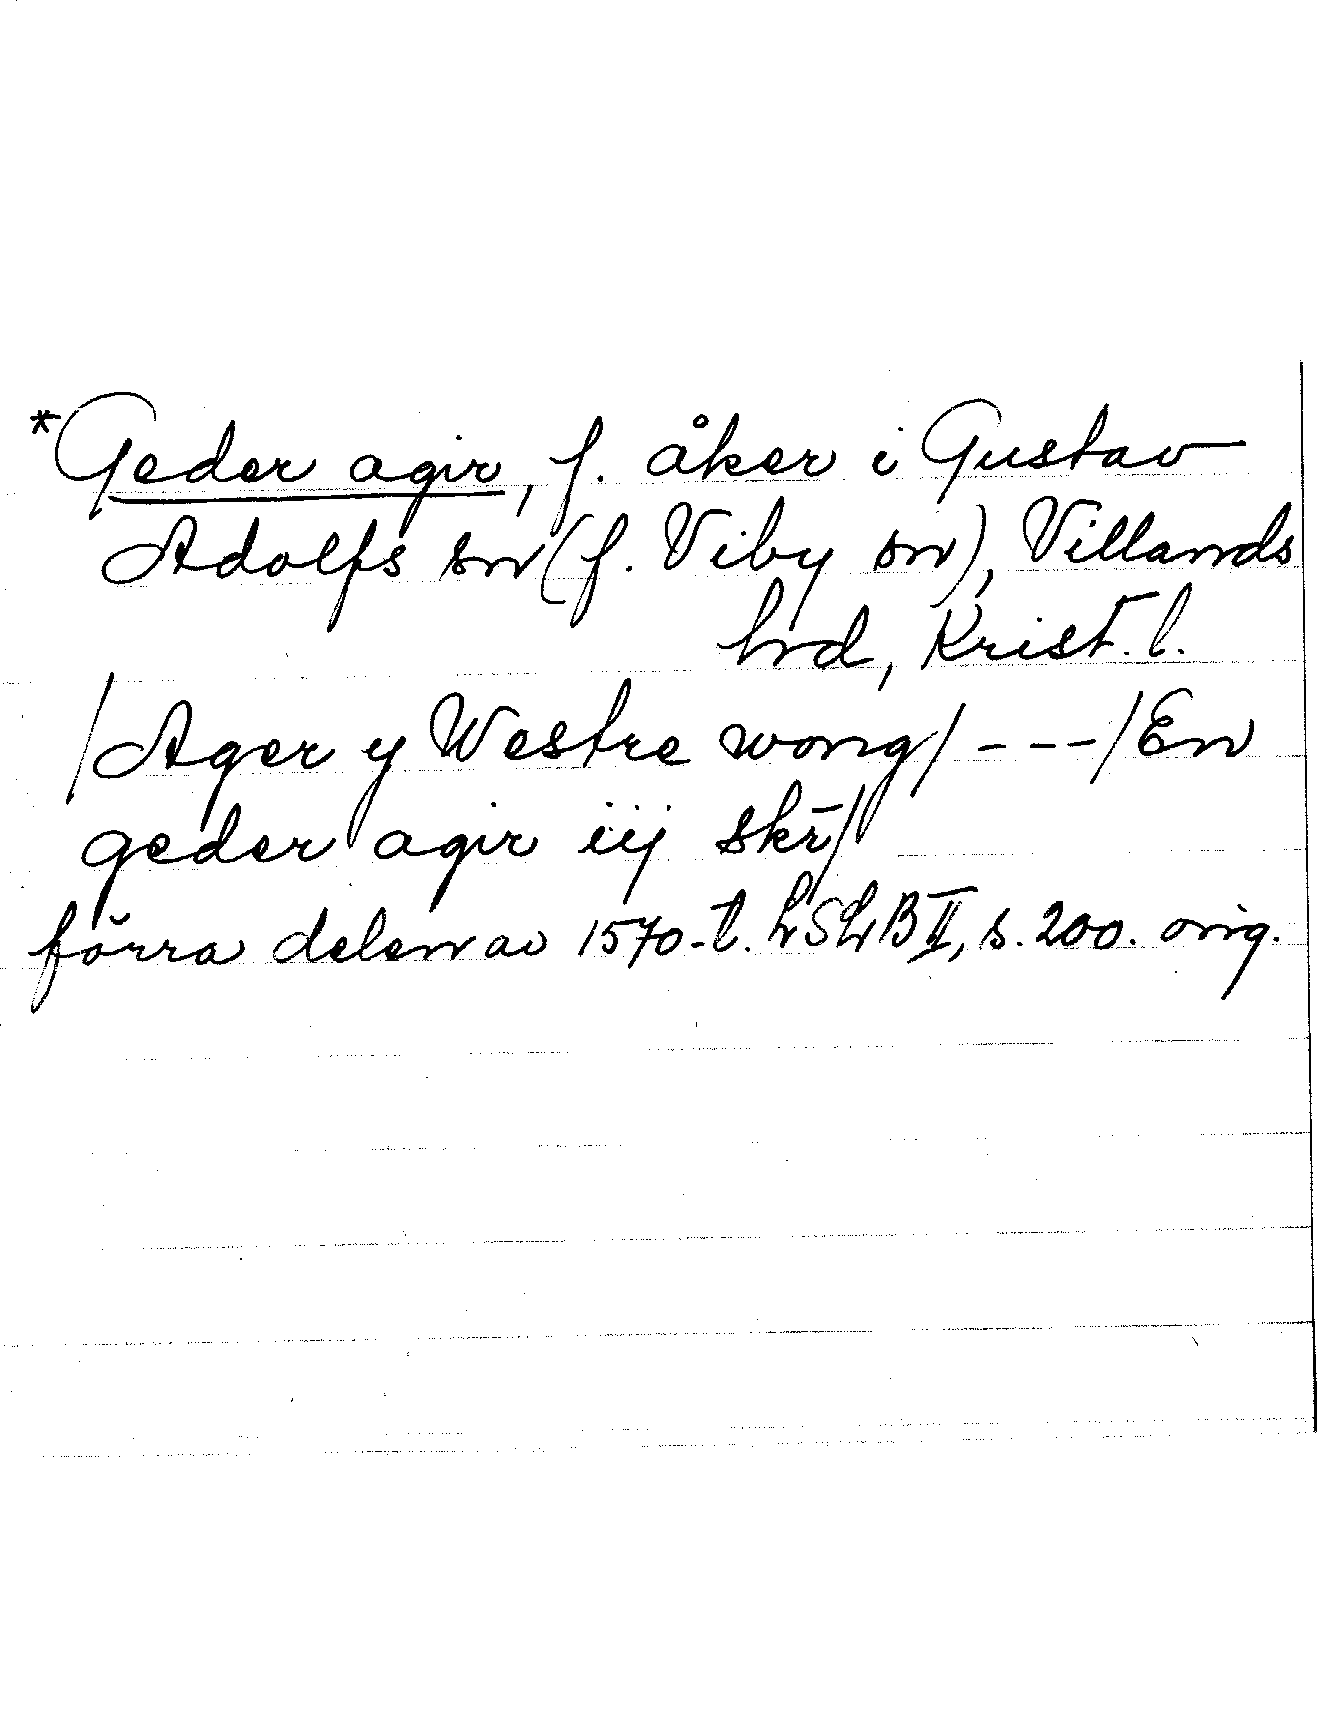 *Geder agir, f. åker i Gustav
Adolfs sn (f. Viby sn), Villands
hrd, Krist. l.
/Ager y Westre wong/ - - - /En
geder agir iij skr̄/
förra delen av 1570-t. LSLB II, s. 200. orig.